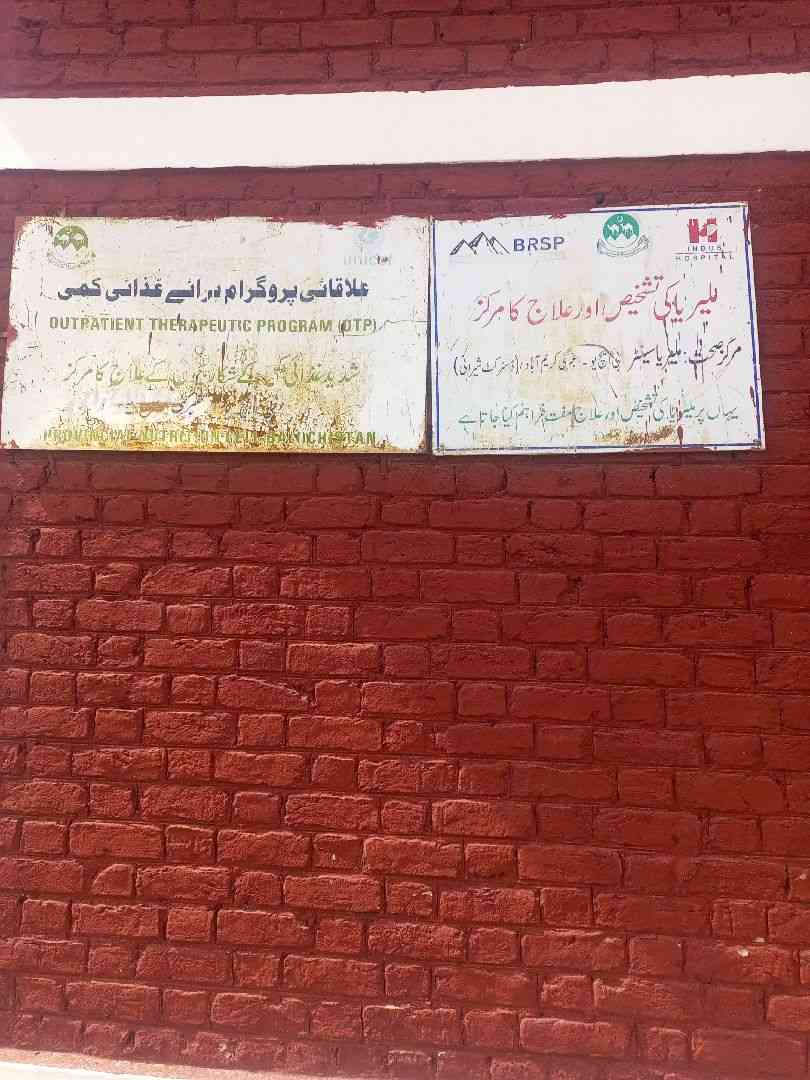 unicef
علاقائی پروگرام برائے غذائی کمی
OUTPATIENT THERAPEUTIC PROGRAM (OTP)
شدید غذائی کمی کے شکار بچوں کے علاج کا مرکز
PROVINCIAL NUTRITION CELL BALOCHISTAN
BRSP
INDUS
HOSPITAL
ملیریا کی تشخیص اور علاج کا مرکز
مرکز صحت: ملیریا سینٹر بی ایچ یو۔ کریم آباد (ڈسٹرکٹ شیرانی)
یہاں پر ملیریا کی تشخیص اور علاج مفت فراہم کیا جاتا ہے